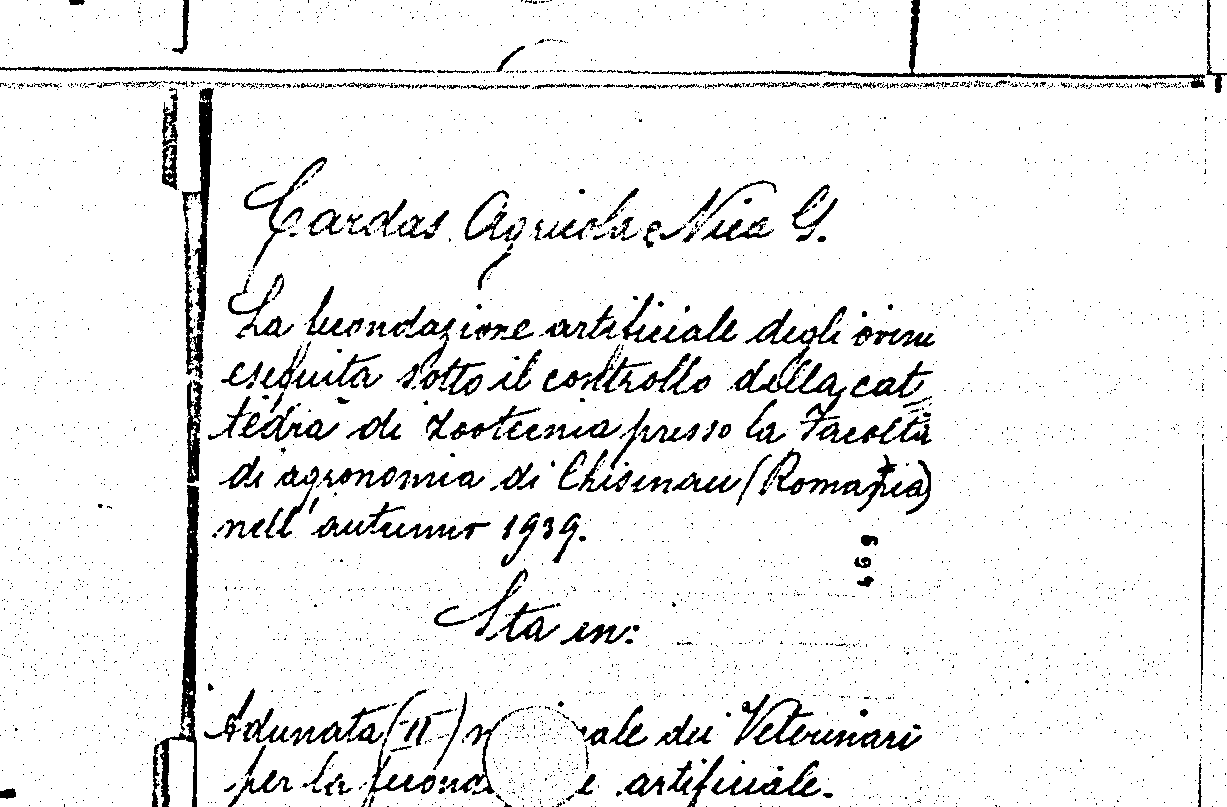 Cardas Agricola e Nica G.
La fecondazione artificiale degli ovini
eseguita sotto il controllo della cat
tedra di zootecnia presso la Facoltà
di agronomia di Chisinau (Romania)
nell'autunno 1939.
469
Sta in:
Adunata (II) n ale dei Veterinari
per la fecond e artificiale.